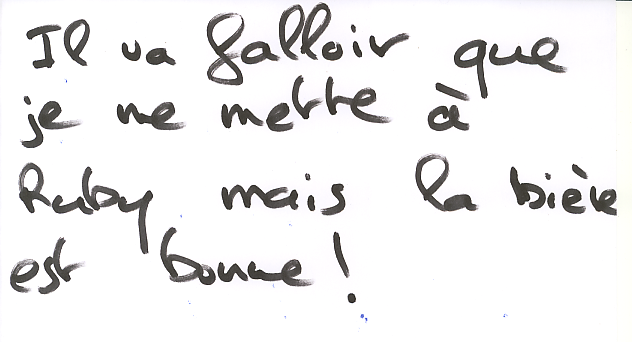 Il va falloir que
je me mette à
Ruby mais la bière
est bonne!